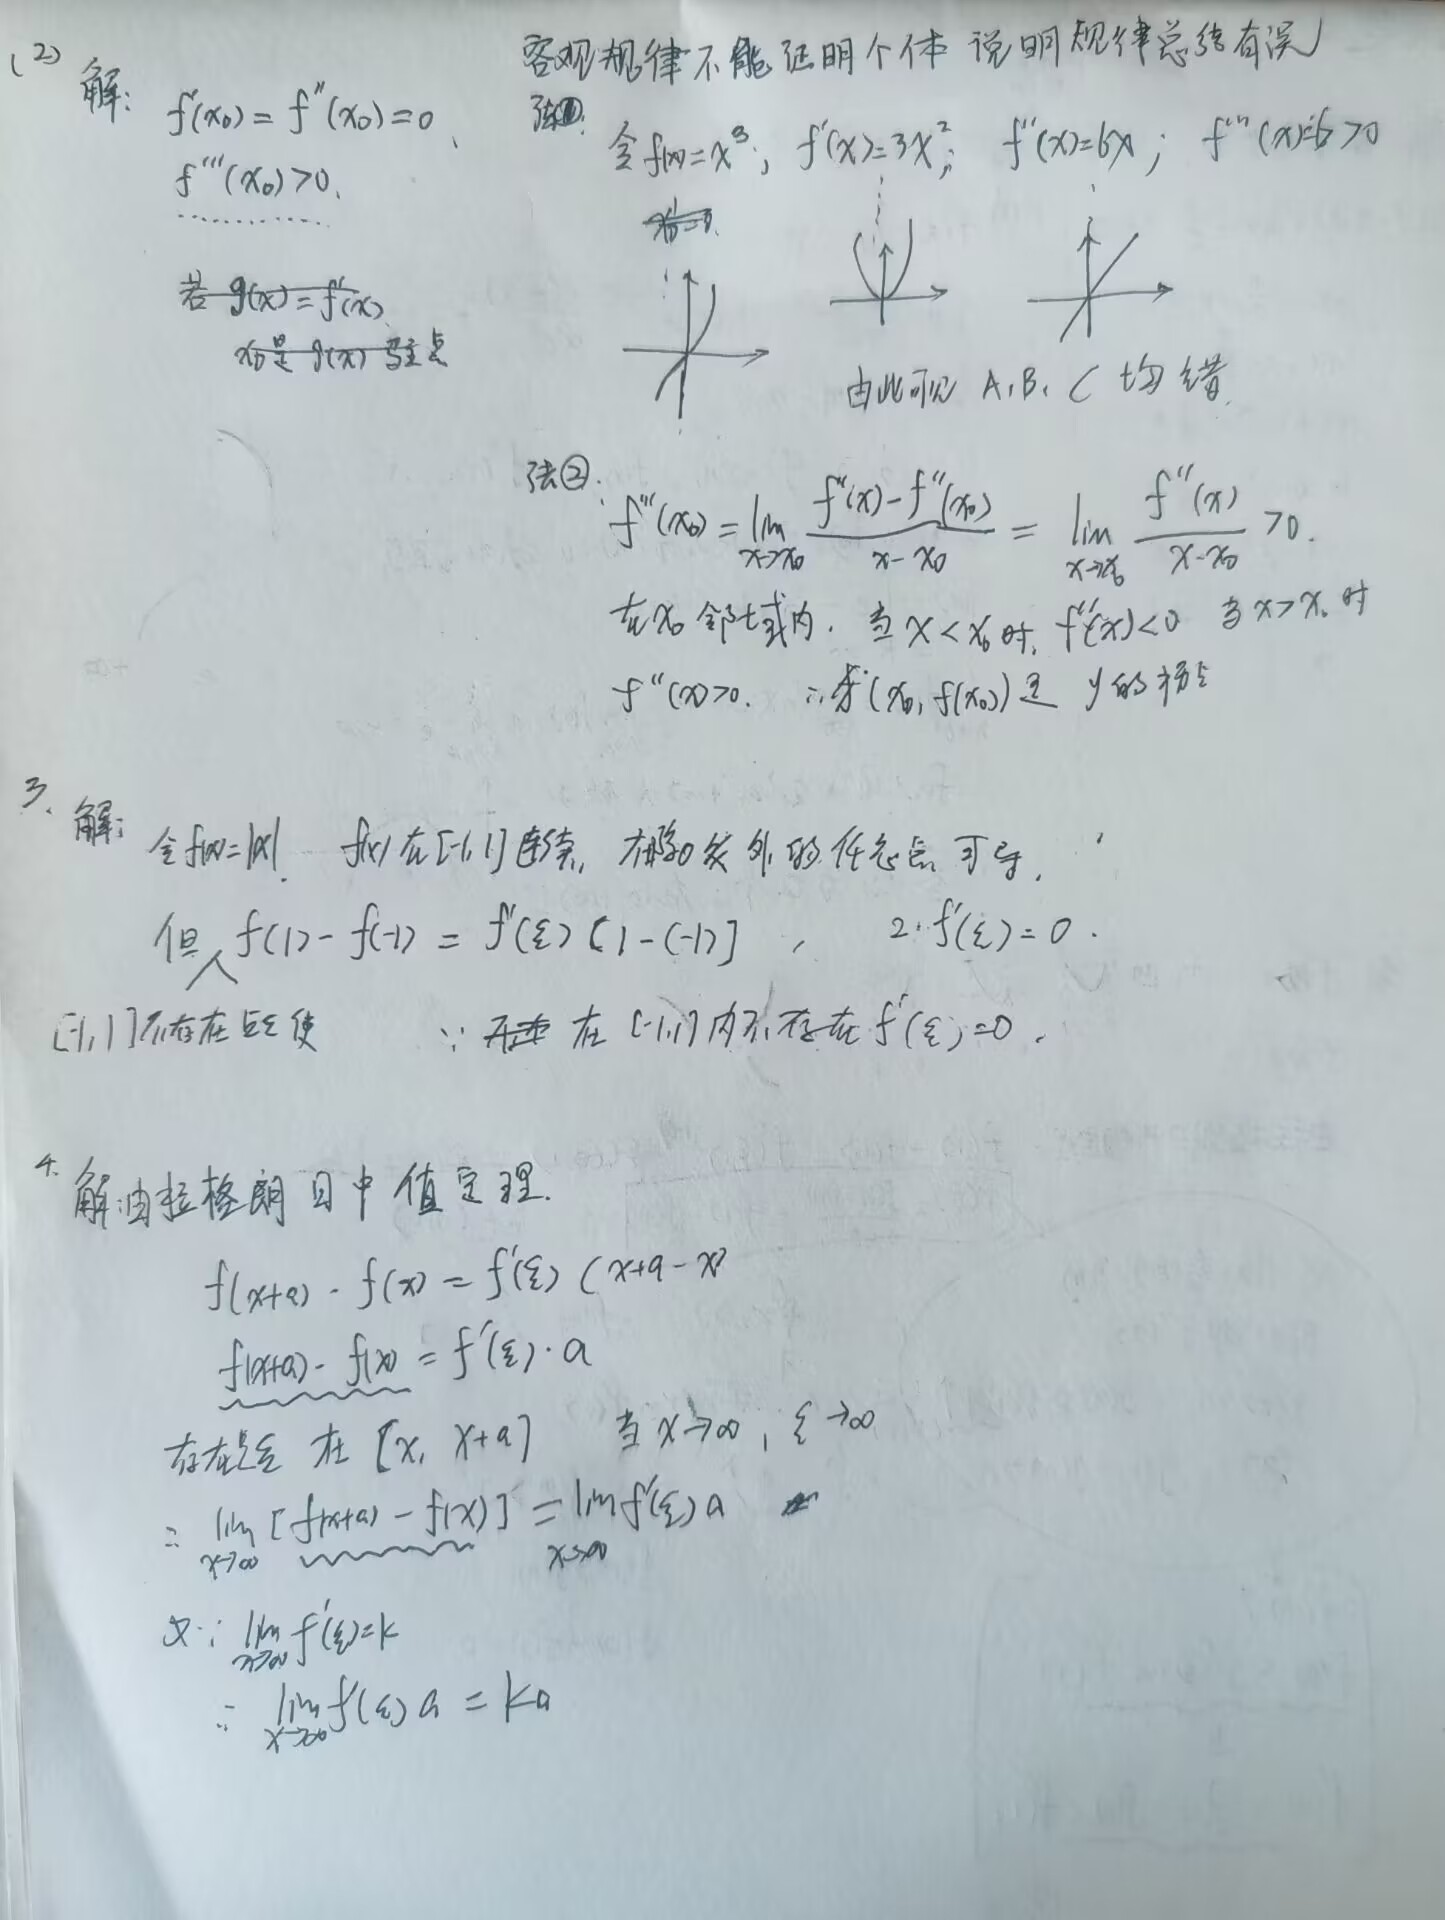 (2)
客观规律不能证明个体 说明规律总结有误
解: f'(x₀) = f''(x₀) = 0.
f'''(x₀) > 0.
若 g(x) = f'(x)
x₀是 g(x) 驻点
法①. 令 f(x) = x³; f'(x) = 3x²; f''(x) = 6x; f'''(x) = 6 > 0
由此可见 A, B, C 均错
法②. f'''(x₀) = lim_{x→x₀} (f''(x) - f''(x₀))/(x - x₀) = lim_{x→x₀} f''(x)/(x - x₀) > 0.
在 x₀ 邻域内. 当 x < x₀ 时, f''(x) < 0 当 x > x₀ 时
f''(x) > 0. ∴ (x₀, f(x₀)) 是 y 的拐点
3.
解: 令 f(x) = |x|. f(x) 在 [-1, 1] 连续, 在除 0 处外的任意点可导.
但 f(1) - f(-1) = f'(ξ) [1 - (-1)], 2·f'(ξ) = 0.
[-1, 1] 不存在点ξ使 ∵ 在 [-1, 1] 内不存在 f'(ξ) = 0.
4.
解: 由拉格朗日中值定理.
f(x+a) - f(x) = f'(ξ) (x+a-x)
f(x+a) - f(x) = f'(ξ)·a
存在点ξ 在 [x, x+a] 当 x→∞, ξ→∞
∴ lim_{x→∞} [f(x+a) - f(x)] = lim_{x→∞} f'(ξ) a
又∵ lim_{x→∞} f'(ξ) = k
∴ lim_{x→∞} f'(ξ) a = ka